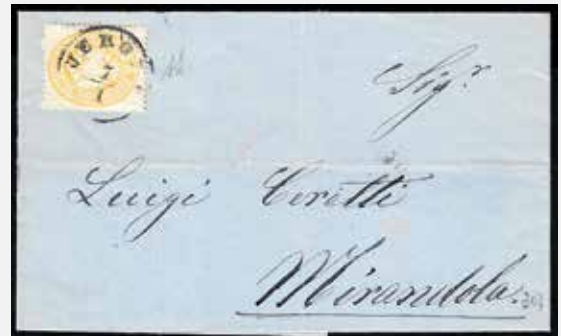 Sig.r
Luigi Ceretti
Mirandola.